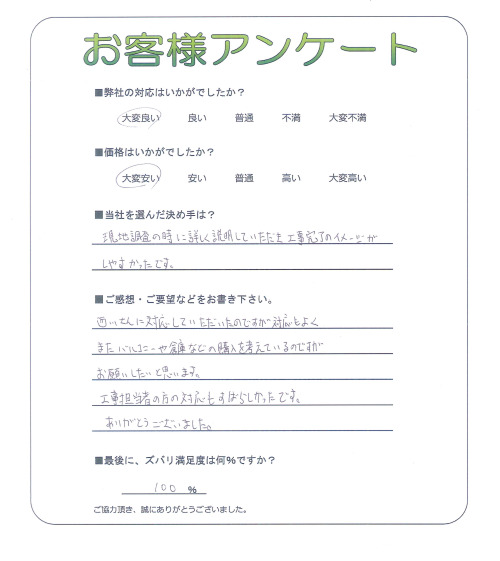 お客様アンケート
■弊社の対応はいかがでしたか？
大変良い 良い 普通 不満 大変不満
■価格はいかがでしたか？
大変安い 安い 普通 高い 大変高い
■当社を選んだ決め手は？
現地調査の時に詳しく説明していただき工事完了のイメージが
しやすかったです。
■ご感想・ご要望などをお書き下さい。
西川さんに対応していただいたのですが対応もよく
また バルコニーや倉庫などの購入を考えているのですが
お願いしたいと思います。
工事担当者の方の対応もすばらしかったです。
ありがとうございました。
■最後に、ズバリ満足度は何%ですか？
100 %
ご協力頂き、誠にありがとうございました。